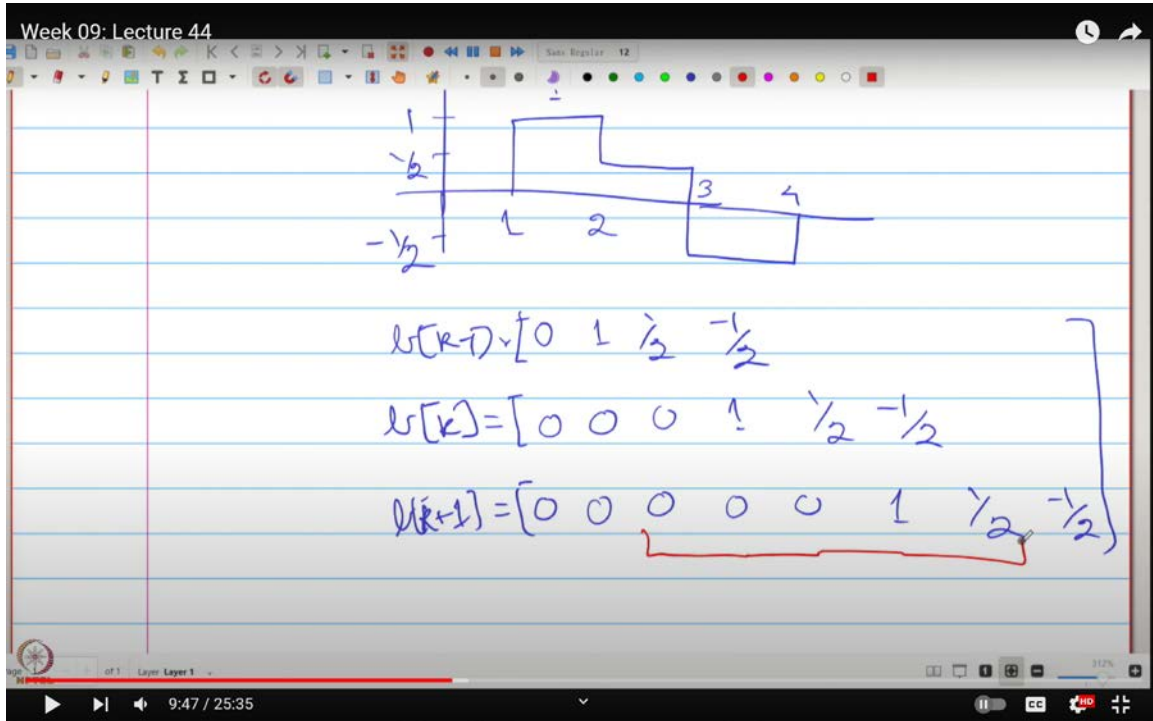 Week 09: Lecture 44
Sans Regular 12
1
1/2
3 4
1 2
-1/2
b[k-1] = [0 1 1/2 -1/2
b[k] = [0 0 0 1 1/2 -1/2
b[k+1] = [0 0 0 0 0 1 1/2 -1/2]
of 1 Layer Layer 1 312%
NPTEL
9:47 / 25:35 CC HD